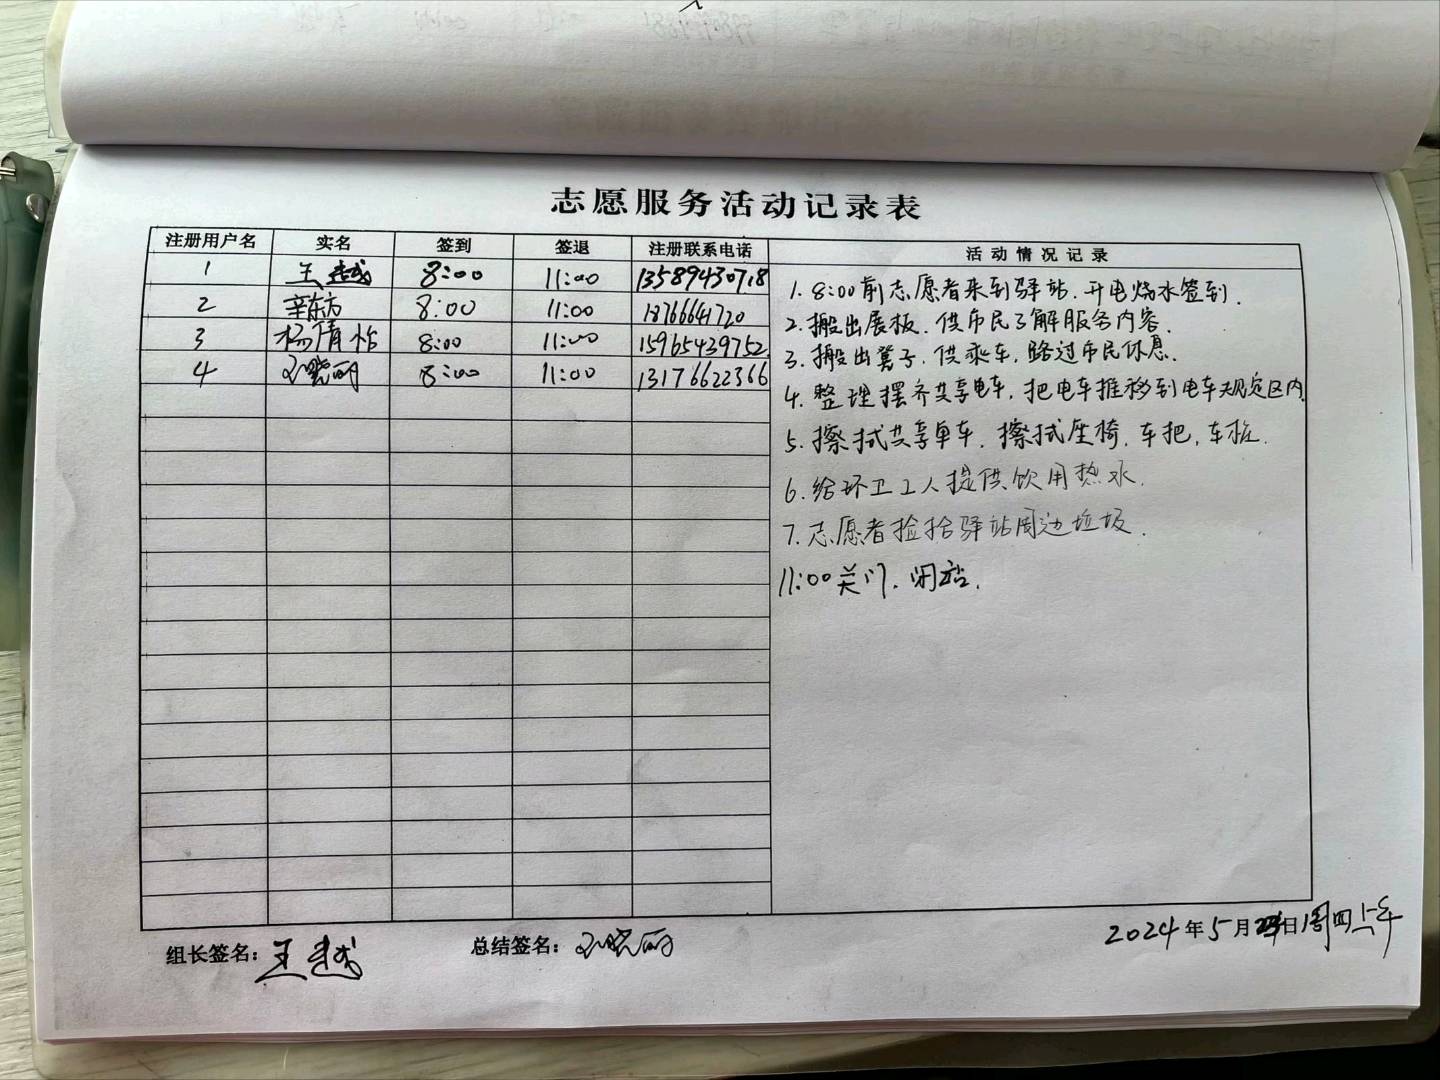 志愿服务活动记录表
注册用户名 实名 签到 签退 注册联系电话 活动情况记录
1 王越 8:00 11:00 13589430718
2 辛东方 8:00 11:00 18766641720
3 杨倩怡 8:00 11:00 15965439752
4 刘晓丽 8:00 11:00 13176622366
1. 8:00前志愿者来到驿站.开电烧水签到.
2.搬出展板.供市民了解服务内容.
3.搬出凳子.供乘车,路过市民休息.
4.整理摆齐共享电车,把电车推移到电车规定区内.
5.擦拭共享单车.擦拭座椅.车把,车桩.
6.给环卫工人提供饮用热水.
7.志愿者捡拾驿站周边垃圾.
11:00关门.闭站.
组长签名：王越 总结签名：刘晓丽 2024年5月 日周四上午